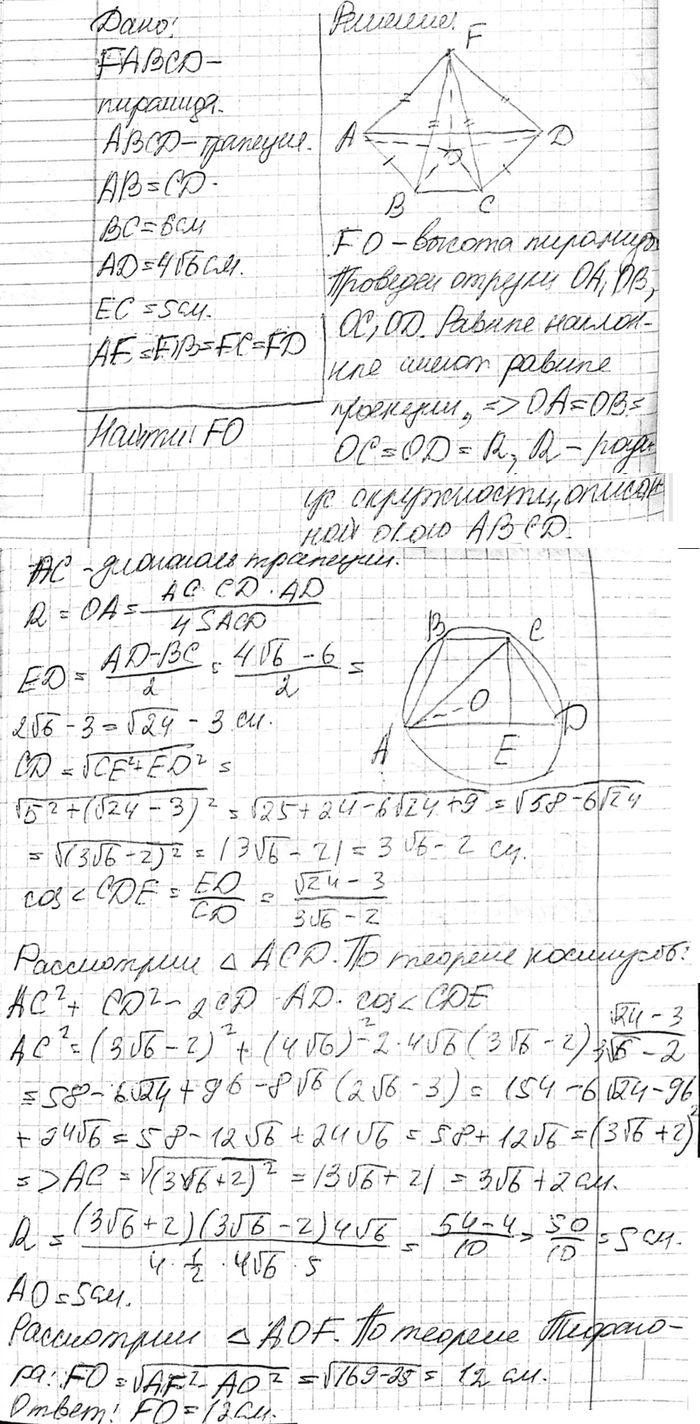 Дано:
FABCD –
пирамида.
ABCD – трапеция.
AB = CD.
BC = 6 см
AD = 4√6 см.
EC = 5 см.
AF = FB = FC = FD
Найти: FO
Решение:
F
A
D
O
B
C
FO – высота пирамиды
Проведем отрезки OA, OB,
OC, OD. Равные наклон-
ные имеют равные
проекции, => OA = OB =
OC = OD = R, R – ради-
ус окружности, описан-
ной около ABCD.
AC – диагональ трапеции.
R = OA = AC·CD·AD / 4SACD
ED = (AD – BC) / 2 = (4√6 – 6) / 2 =
2√6 – 3 = √24 – 3 см.
CD = √(CE² + ED²) =
B
C
O
A
E
D
√(5² + (√24 – 3)²) = √(25 + 24 – 6√24 + 9) = √(58 – 6√24)
= √((3√6 – 2)²) = |3√6 – 2| = 3√6 – 2 см.
cos < CDE = ED / CD = (√24 – 3) / (3√6 – 2)
Рассмотрим △ ACD. По теореме косинусов:
AC² + CD² – 2CD · AD · cos < CDE
AC² = (3√6 – 2)² + (4√6)² – 2·4√6 (3√6 – 2) (√24 – 3) / (3√6 – 2)
= 58 – 6√24 + 96 – 8√6 (2√6 – 3) = 154 – 6√24 – 96
+ 24√6 = 58 – 12√6 + 24√6 = 58 + 12√6 = (3√6 + 2)²
=> AC = √((3√6 + 2)²) = |3√6 + 2| = 3√6 + 2 см.
R = (3√6 + 2)(3√6 – 2) 4√6 / (4 · 1/2 · 4√6 · 5) = (54 – 4) / 10 = 50 / 10 = 5 см.
AO = 5 см.
Рассмотрим △ AOF. По теореме Пифаго-
ра: FO = √(AF² – AO²) = √(169 – 25) = 12 см.
Ответ: FO = 12 см.